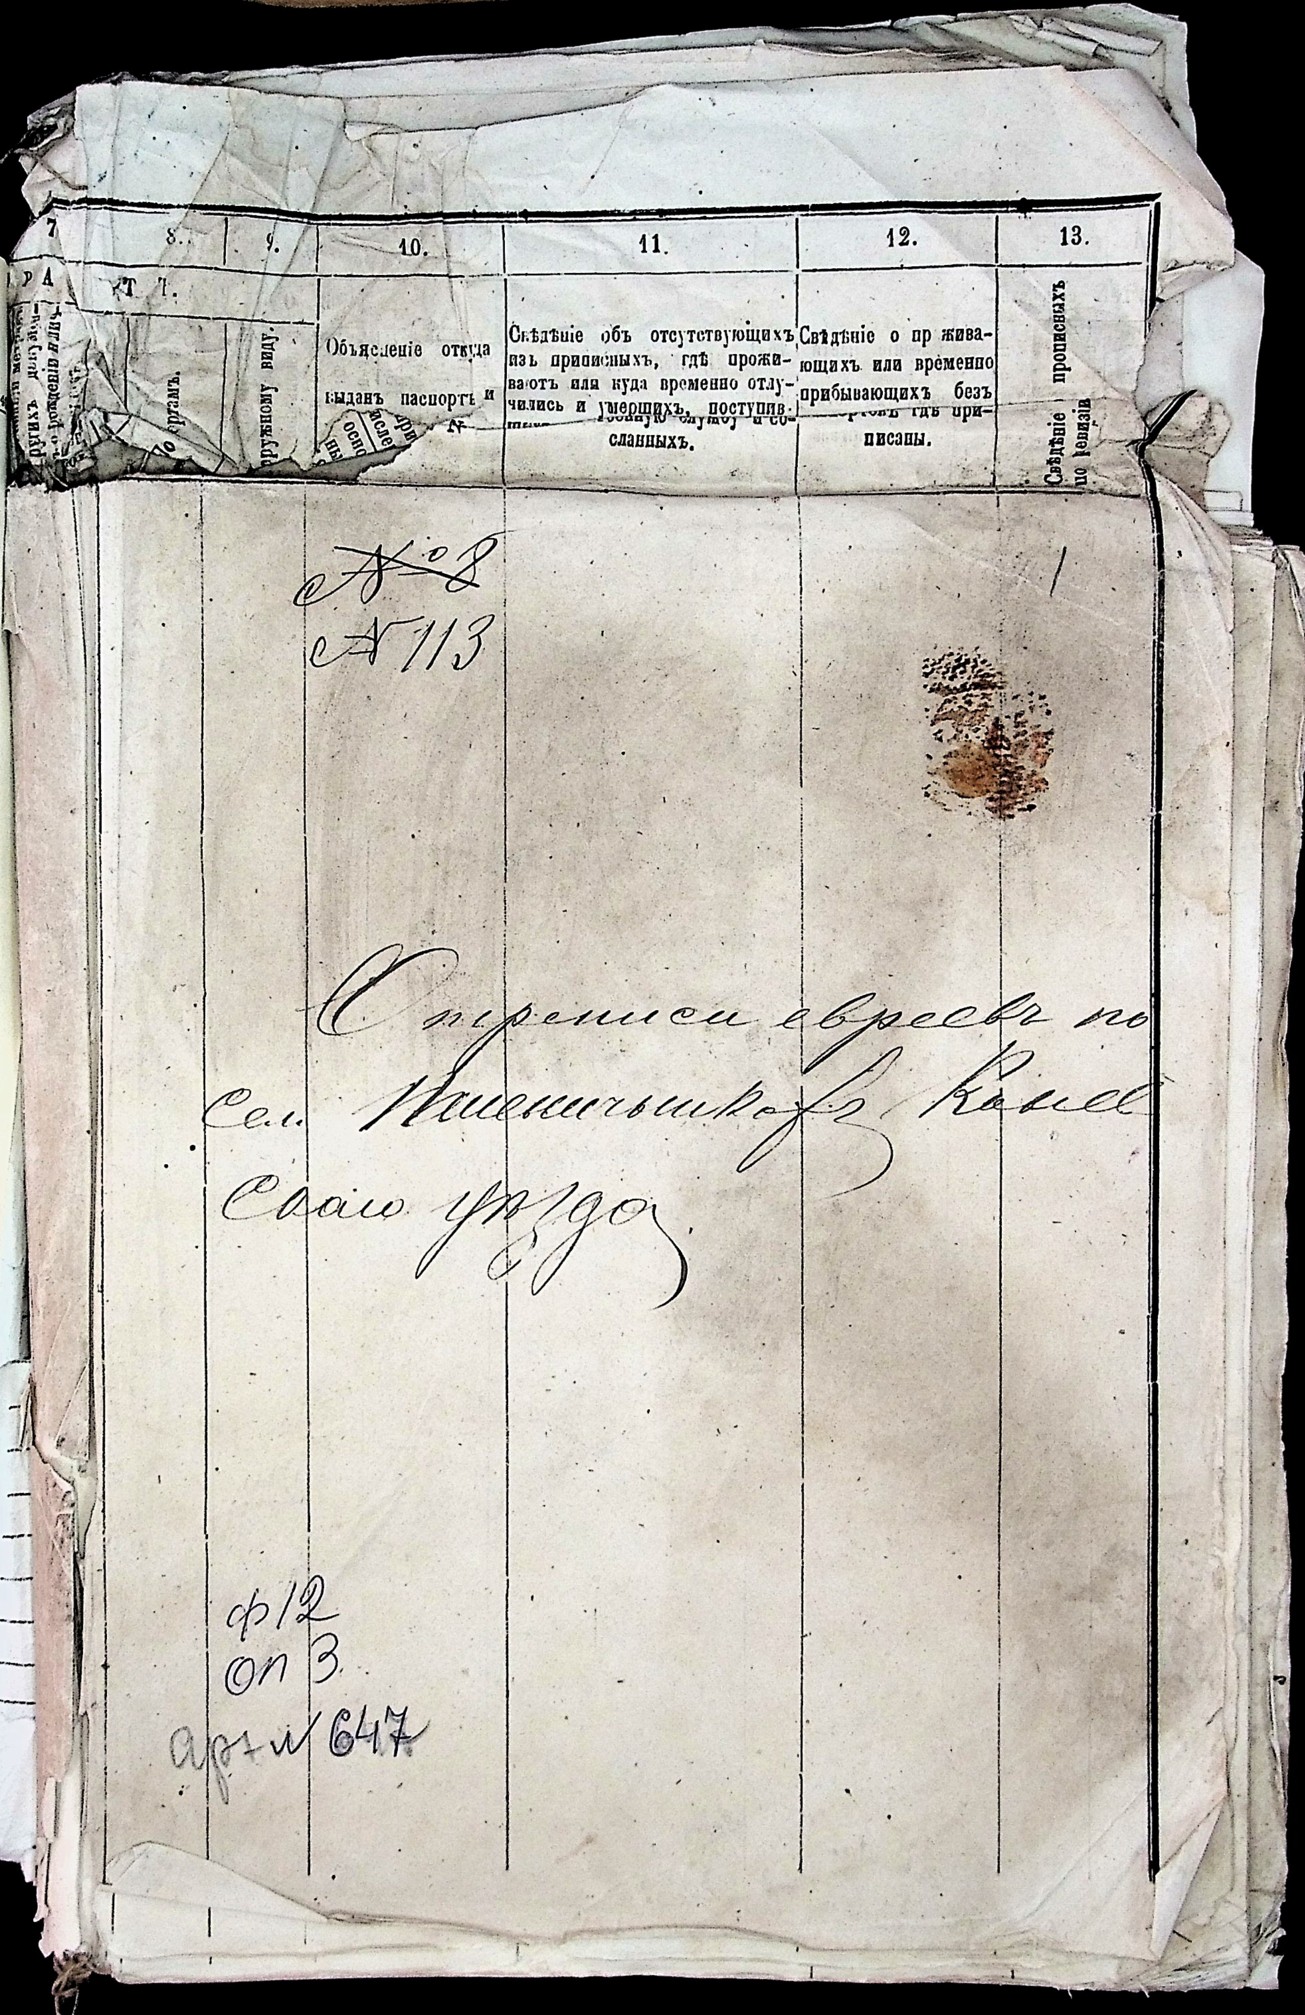 7 8. 9. 10. 11. 12. 13.
Р А Т Ъ.
Объясненіе откуда
выданъ паспортъ и
Свѣдѣніе объ отсутствующихъ
изъ приписныхъ, гдѣ прожи-
ваютъ или куда временно отлу-
чились и умершихъ, поступив-
сланныхъ.
Свѣдѣніе о пр жива-
ющихъ или временно
прибывающихъ безъ
гдѣ при-
писаны.
Свѣдѣніе прописныхъ
по ревизіи
ружному виду.
№ 8
№ 113
1
О переписи евреевъ по
сел. Пшеничникахъ Канев
скаго уѣзда
ф 12
оп 3
арх № 647